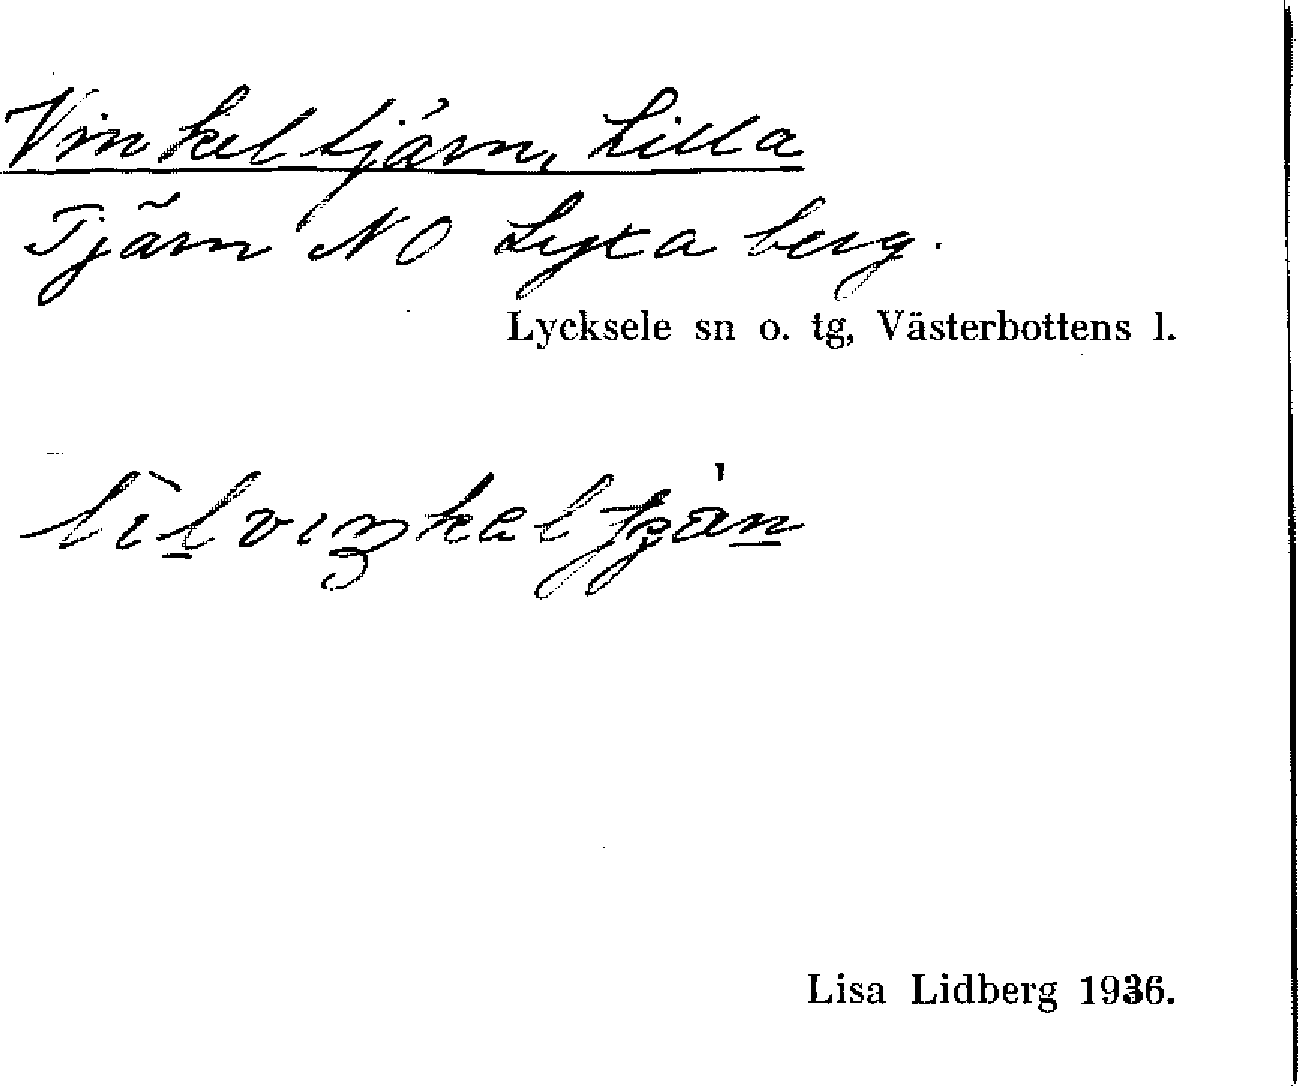 Vinkeltjärn, Lilla
Tjärn NO Lyxaberg.
Lycksele sn o. tg, Västerbottens l.
Lisa Lidberg 1936.